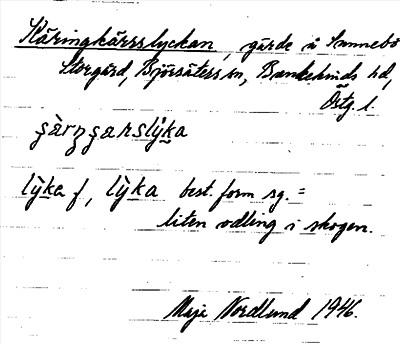 Käringkärrslyckan, gärde å Sunnebo
Storgård, Björsäters sn, Bankekinds hd,
Östg. l.
lỳka f, lỳka best. form sg. =
liten odling i skogen.
Maja Nordlund 1946.